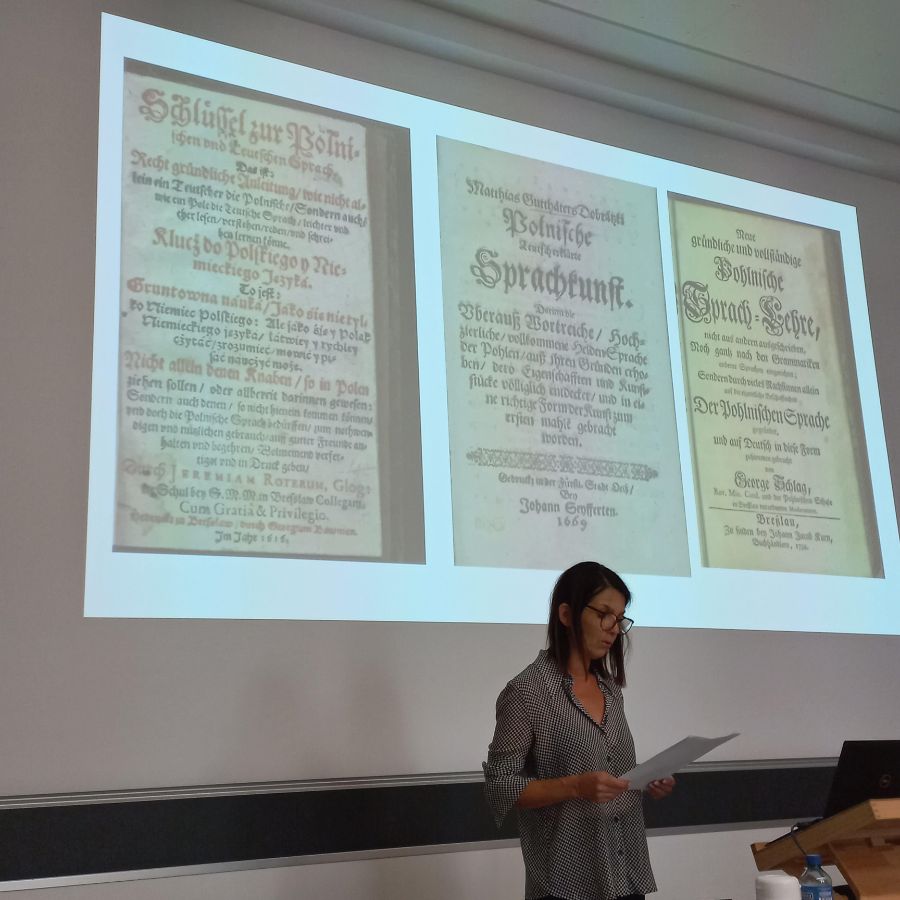 Schlüssel zur Polni-
schen vnd Teutschen Sprache.
Das ist:
Recht gründliche Anleitung/ wie nicht al-
lein ein Teutscher die Polnische/ Sondern auch/
wie ein Pole die Teutsche Sprach/ leichter vnd
eher lesen/ verstehen/ reden/ vnd schrei-
ben lernen könne.
Klucż do Polskiego y Nie-
mieckiego Języka.
To jest:
Gruntowna nauka/ Jako sie nie tyl-
ko Niemiec Polskiego: Ale jako też y Polak
Niemieckiego języka/ łatwiey y rychley
cżytać/ zrozumieć/ mowić y pi-
sać nauczyć może.
Nicht allein denen Knaben/ so in Polen
ziehen sollen/ oder allbereit darinnen gewesen:
Sondern auch denen/ so nicht hienein kommen können/
vnd doch die Polnische Sprach bedürffen/ zum nothwen-
digen vnd nützlichen gebrauch/ auff gutter Freunde an-
halten vnd begehren/ Wolmeinend verfer-
tiget vnd in Druck geben/
Durch JEREMIAM ROTERUM, Glog:
Schul bey S. M. M. in Breslaw Collegam.
Cum Gratiâ & Privilegio.
Gedruckt zu Breslaw, durch Georgium Bawman
Im Jahr 1616.
Matthias Gutthäters Dobratzki
Polnische
Teutsch erklärte
Sprachkunst.
Darinn die
Vberauß Wortreiche/ Hoch-
zierliche/ vollkommene Helden Sprache
der Pohlen/ auß ihren Gründen erho-
ben/ dero Eigenschafften und Kunst-
stücke völliglich entdecket/ und in ei-
ne richtige Form der Kunst zum
ersten mahle gebracht
worden.
Gedruckt in der Fürstl. Stadt Oels/
Bey
Johann Seyfferten.
1669
Neue
gründliche und vollständige
Pohlnische
Sprach-Lehre,
nicht aus andern ausgeschrieben,
Noch gantz nach den Grammatiken
anderer Sprachen eingerichtet;
Sondern durch vieles Nachsinnen allein
auf die eigentliche Beschaffenheit
Der Pohlnischen Sprache
gegründet,
und auf Deutsch in diese Form
zusammen gebracht
von
George Schlag,
Rev. Min. Cand. und der Polnischen Schule
in Breßlau verordneten Moderatore.
Breßlau,
Zu finden bey Johann Jacob Korn,
Buchhändlern,
DELL